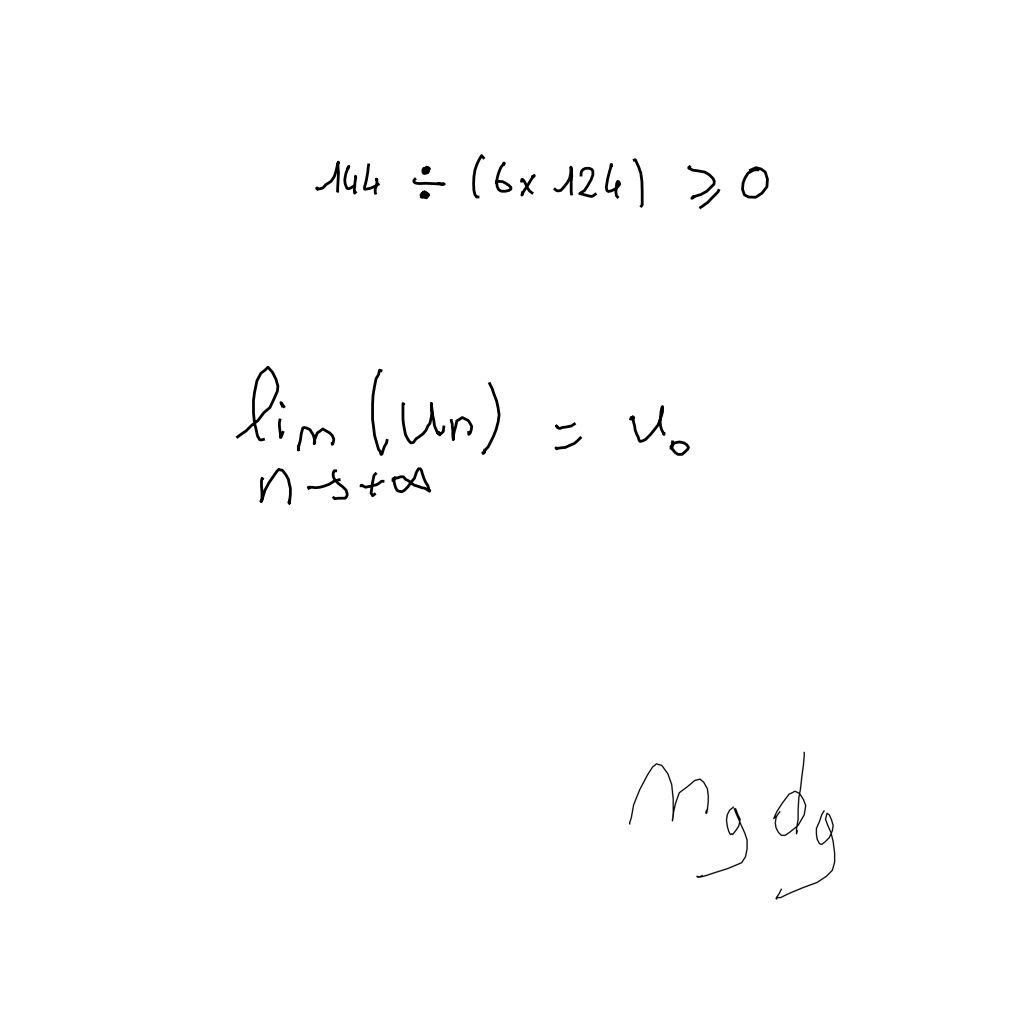 144 ÷ (6 × 124) ⩾ 0
lim (Un) = u₀
n→+∞
mg dg